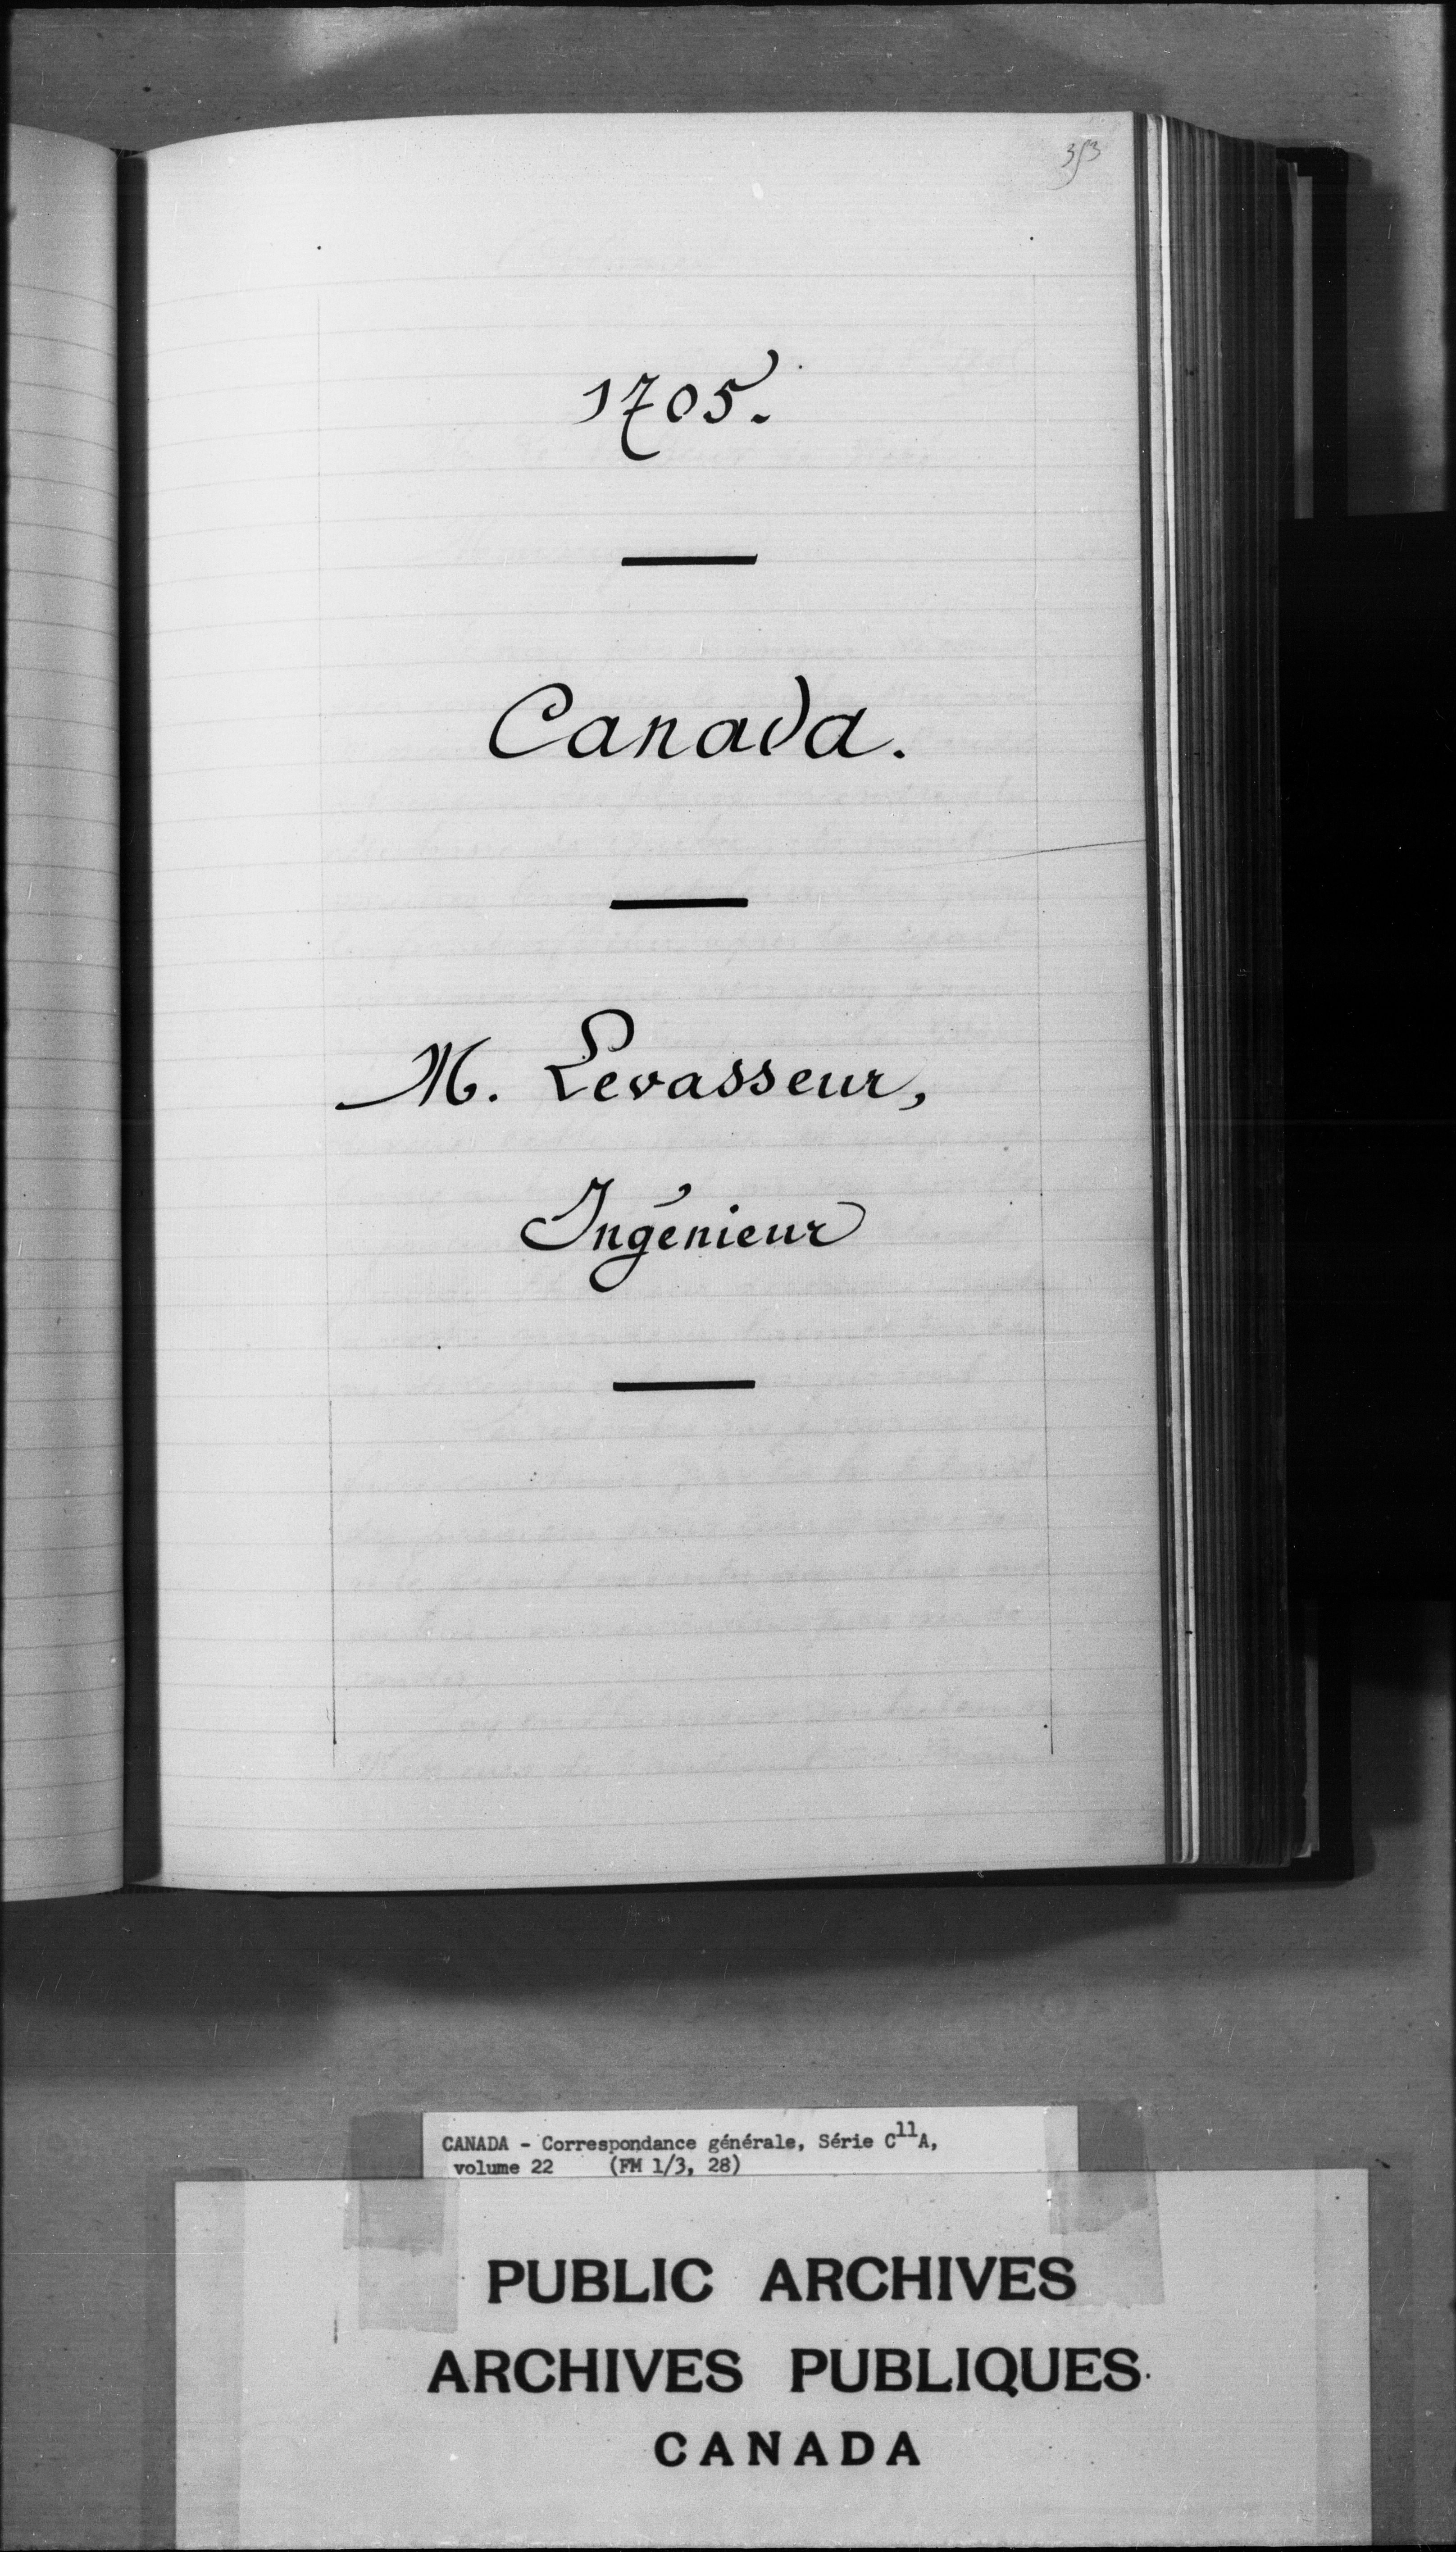 353
1705.
Canada.
M. Levasseur,
Ingénieur
CANADA - Correspondance générale, Série C11A,
volume 22 (FM 1/3, 28)
PUBLIC ARCHIVES
ARCHIVES PUBLIQUES
CANADA